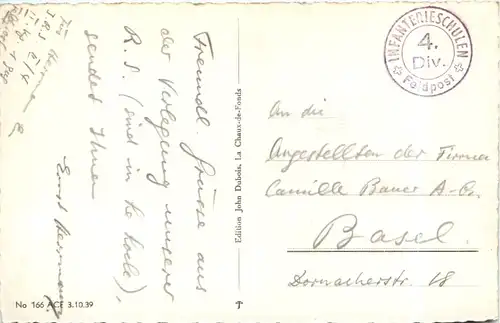 Freundl. Grüsse aus
der Verlegung unserer
R. S. (sind in Le Locle),
sendet Ihnen
Ernst
Edition John Dubois, La Chaux-de-Fonds
No 166 ACF 3.10.39
INFANTERIESCHULEN
4.
Div.
Feldpost
An die
Angestellten der Firma
Camille Bauer A-G.
Basel.
Dornacherstr. 18